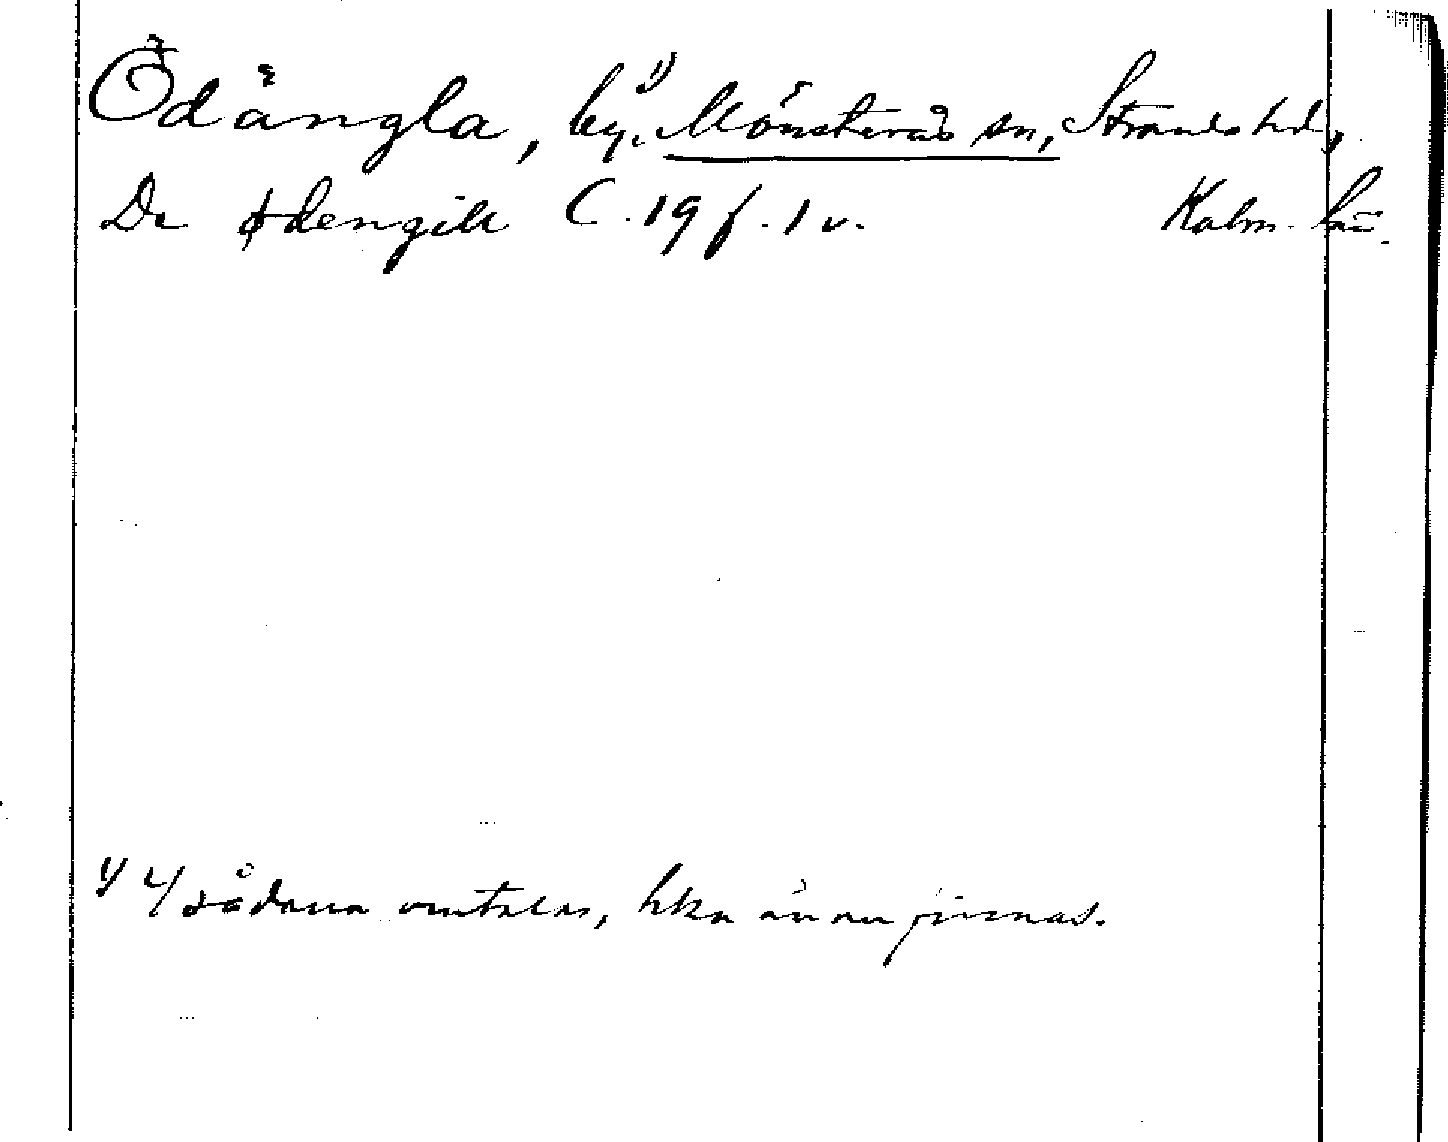 Ödängla, by.¹⁾ Mönsterås sn, Stranda hd,
De ødengill C. 19 f. 1 v. Kalm. län.
1) 4 sådana omtalas, hka ännu finnas.